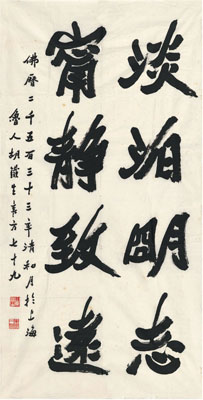 淡泊明志
甯靜致遠
佛曆二千五百三十三年清和月於上海
魯人胡鐵生年方七十九